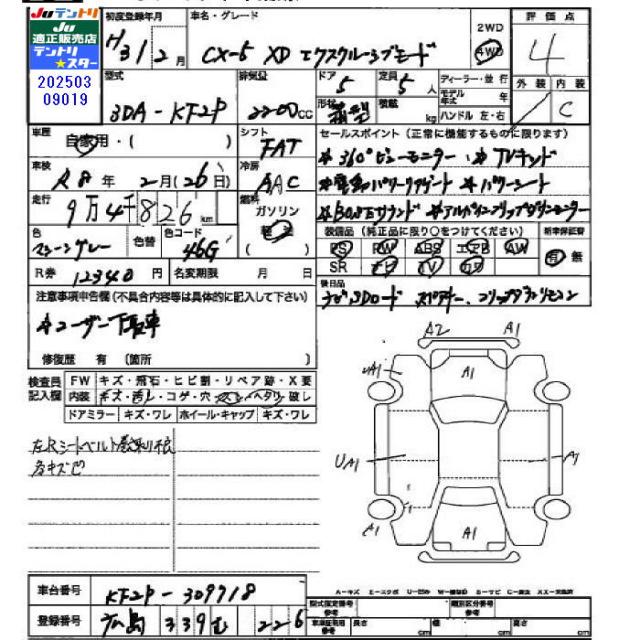 Juテントリ
Ju
適正販売店
テントリ
★スター
202503
09019
初度登録年月
H31 2月
車名・グレード
CX-5 XD エクスクルーシブモード
2WD
4WD
評価点
4
外装 内装
C
型式
3DA-KF2P
排気量
2200cc
ドア 5
定員 5人
形状
積載 kg
ディーラー・並行
モデル年式 年
ハンドル 左・右
車歴
自家用・( )
シフト
FAT
セールスポイント(正常に機能するものに限ります)
*360°ビューモニター *TVキット
*電動パワーリヤゲート *パワーシート
*BOSEサウンド *アルパインフリップダウンモニター
車検
R8年 2月(26日)
冷房
AAC
走行
9万4千826km
燃料
ガソリン
軽油
( )
色
マシーングレー
色替
色コード
46G
装備品(純正品に限り○をつけてください)
PS PW ABS エアB AW
SR ナビ TV カワ
新車保証書
有 無
R券 12340円
名変期限 月 日
後日品
ナビSDカード スペアキー、フリップダウンリモコン
注意事項申告欄(不具合内容等は具体的に記入して下さい)
*ユーザー下取車
修復歴 有 (箇所 )
検査員記入欄
FW キズ・飛石・ヒビ割・リペア跡・X要
内装 キズ・汚レ・コゲ・穴・スレ・ヘタリ・破レ
ドアミラー キズ・ワレ ホイール・キャップ キズ・ワレ
左Rシートベルト巻取り不良
各キズ凹
A2 A1
A1
A1
UA1
A1
A1
A1
A1
車台番号
KF2P-309718
登録番号
広島 339 む 226
A-キズ E-エクボ U-凹み W-補修跡 S-サビ C-腐食 XX-交換済
型式指定番号 参考
類別区分番号 参考
車検証寸法 参考 長さ cm 幅 cm 高さ cm